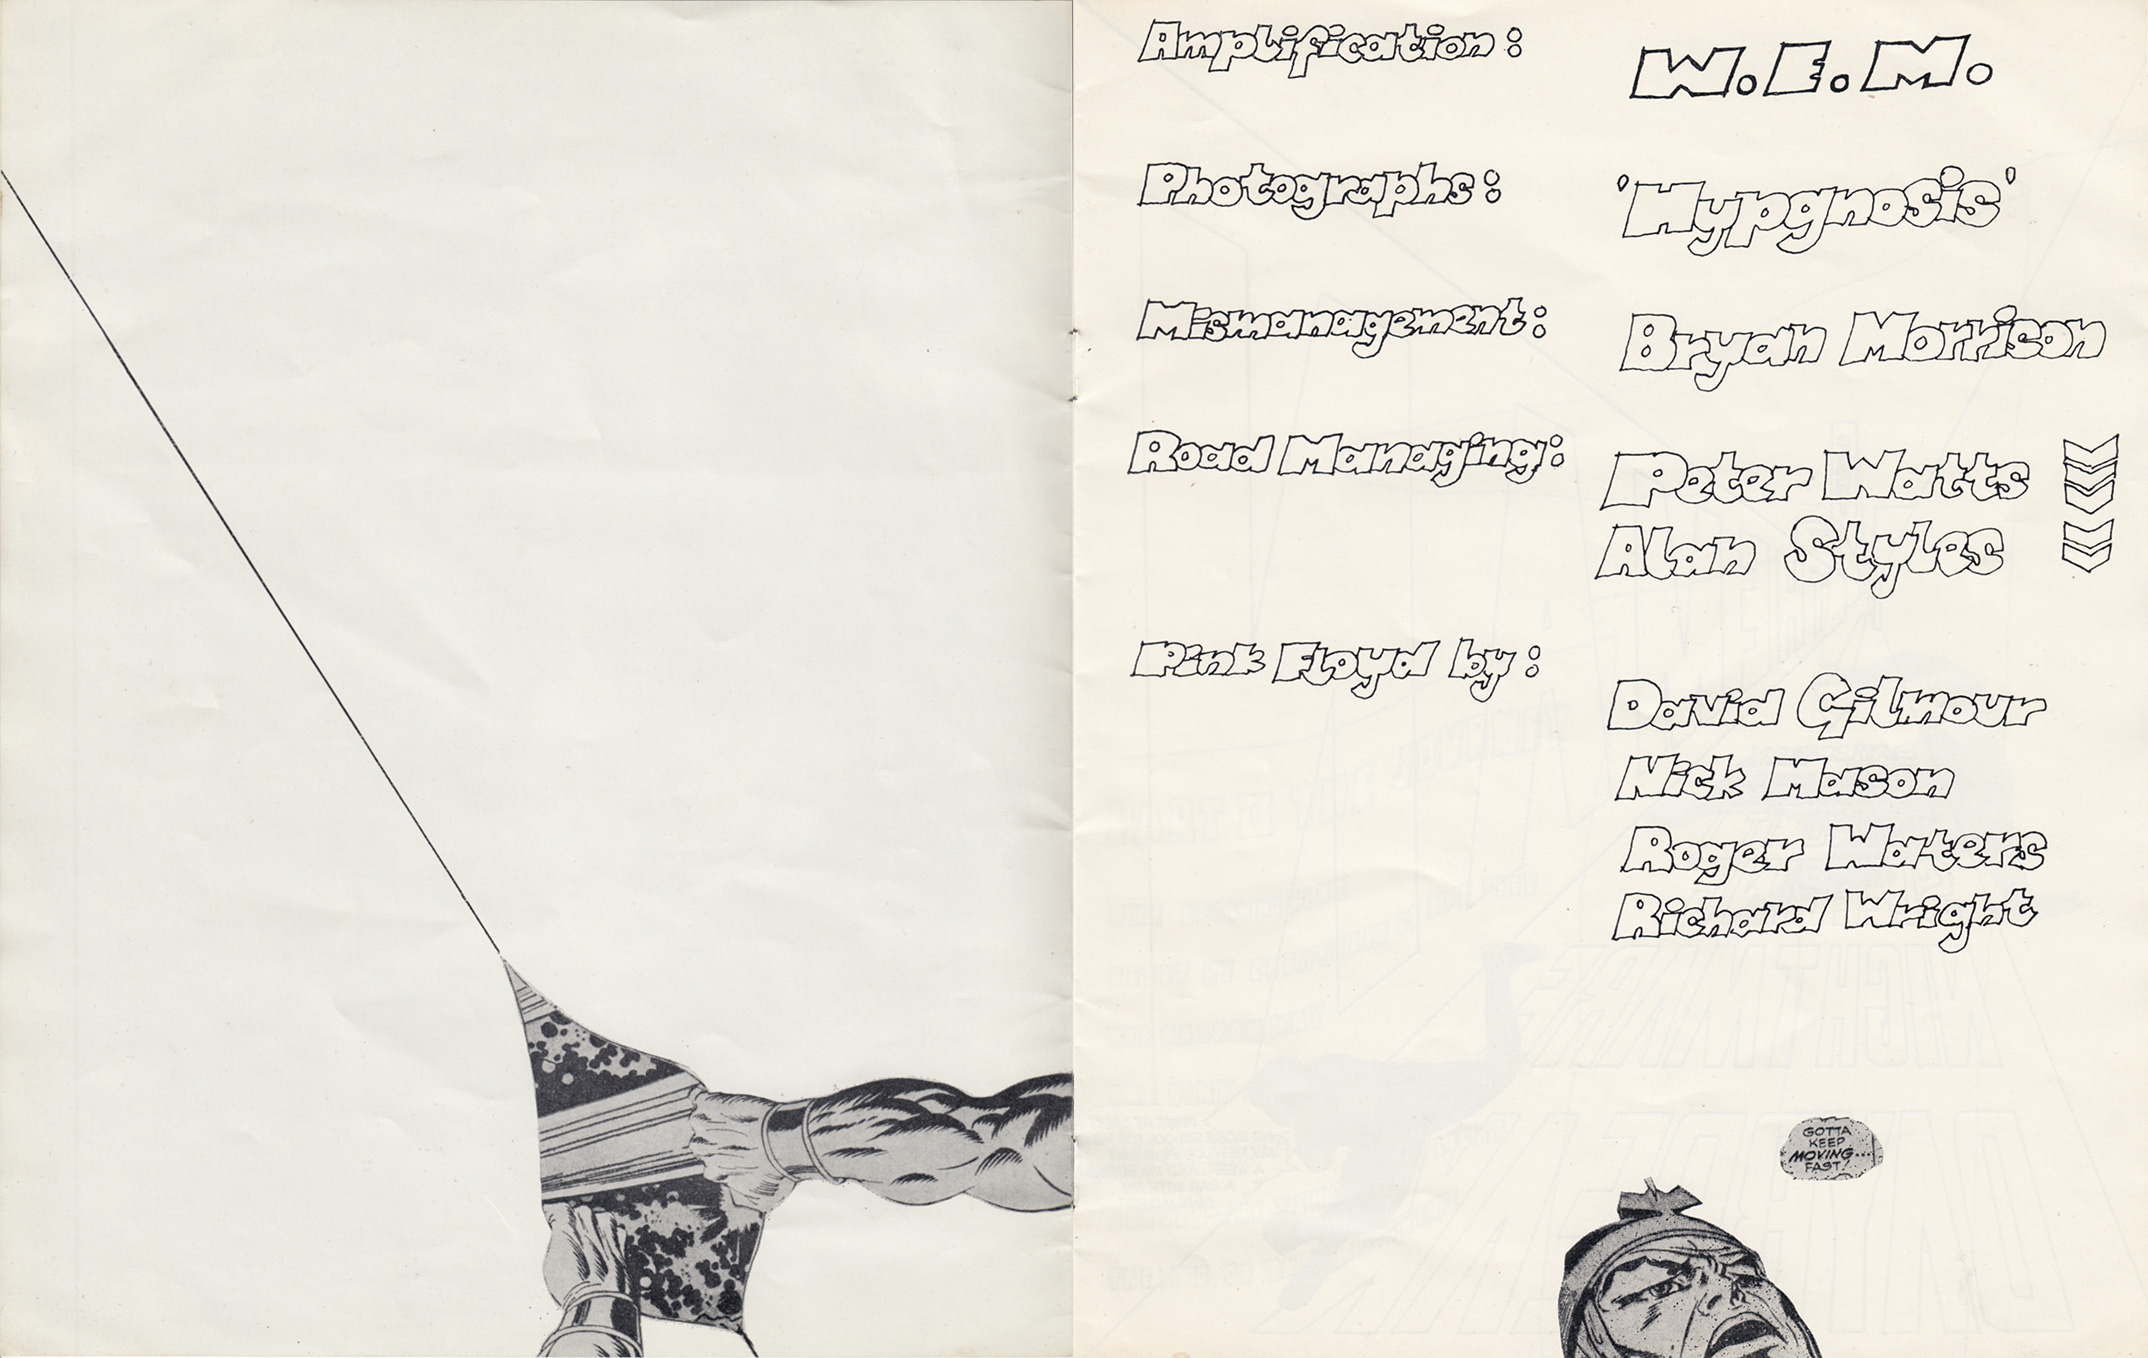 Amplification: W.E.M.
Photographs: 'Hypgnosis'
Mismanagement: Bryan Morrison
Road Managing: Peter Watts
Alan Styles
Pink Floyd by:
David Gilmour
Nick Mason
Roger Waters
Richard Wright
GOTTA
KEEP
MOVING...
FAST!